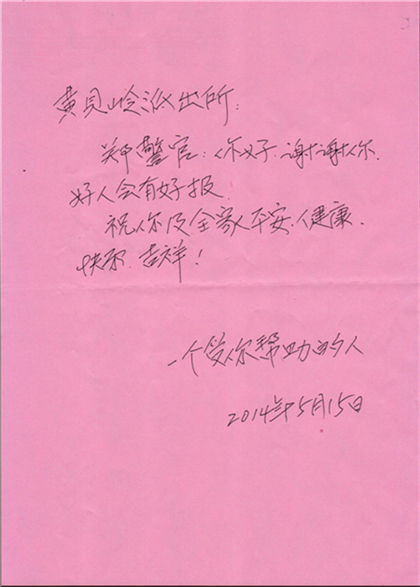 黄贝岭派出所：
郑警官：你好，谢谢你。
好人会有好报。
祝你及全家平安、健康、
快乐、吉祥！
一个受你帮助的人
2014年5月15日